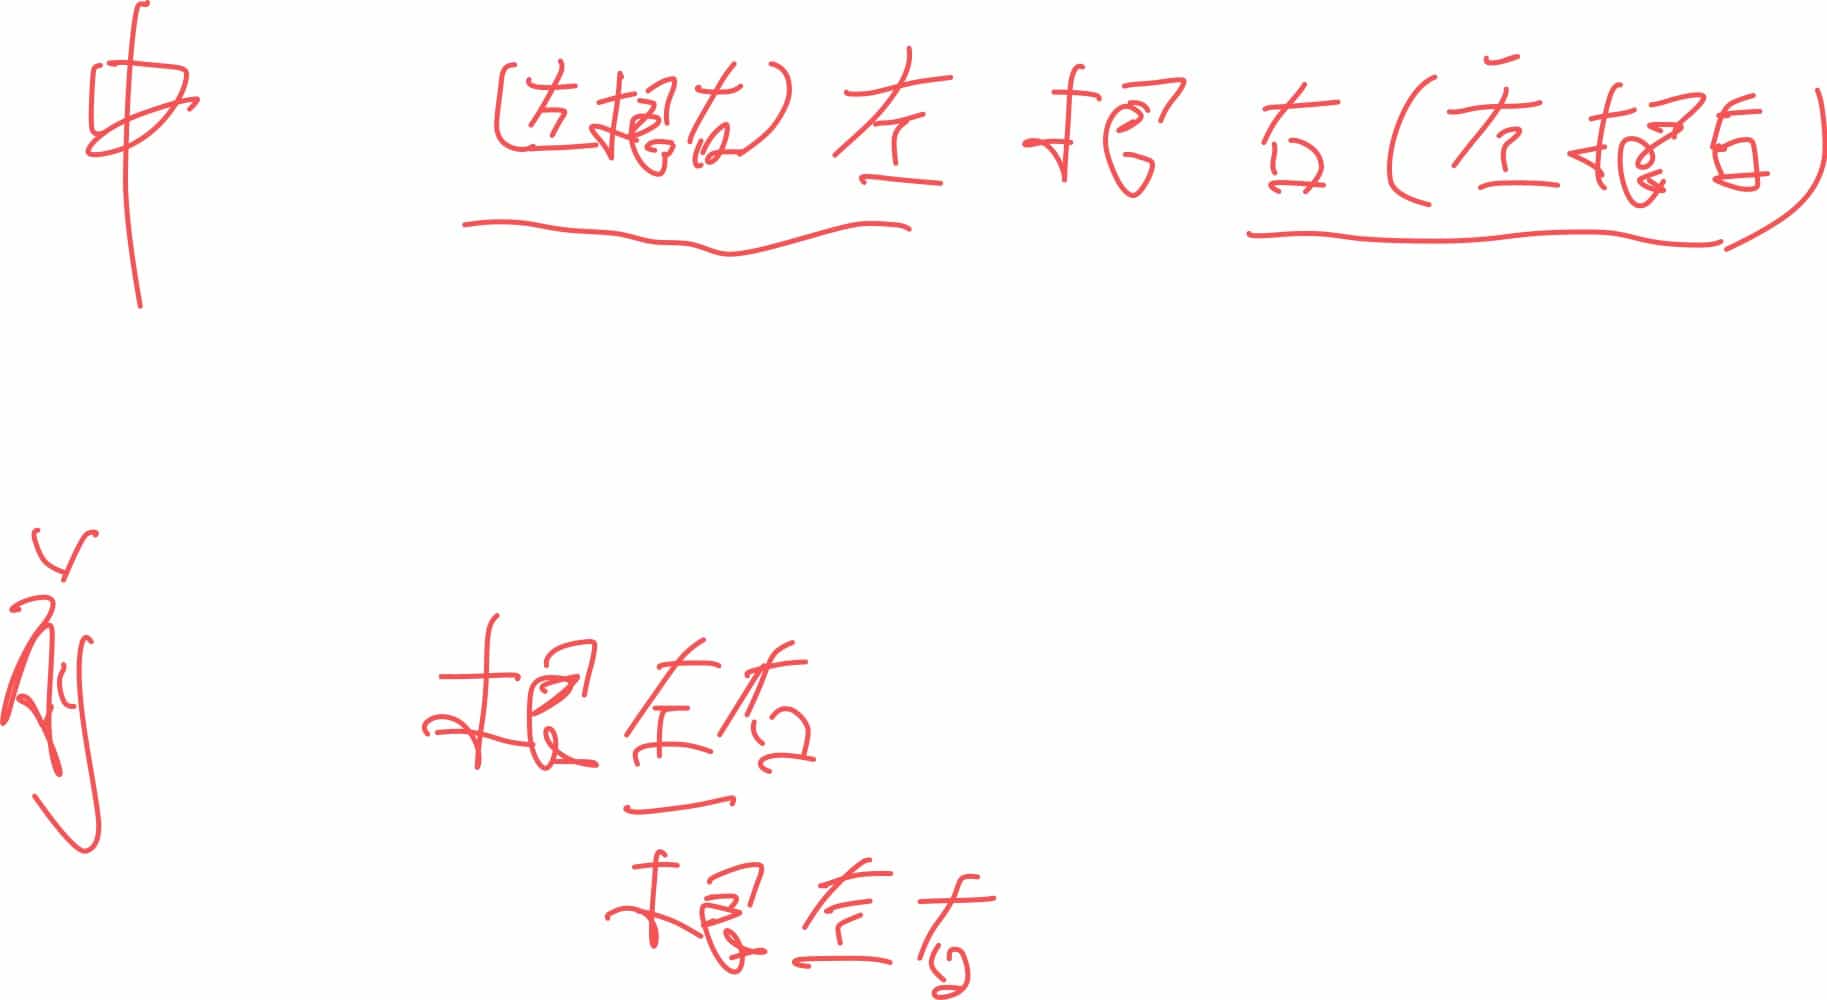 中 (左根右)左 根 右(左根右)
前 根左右
根左右